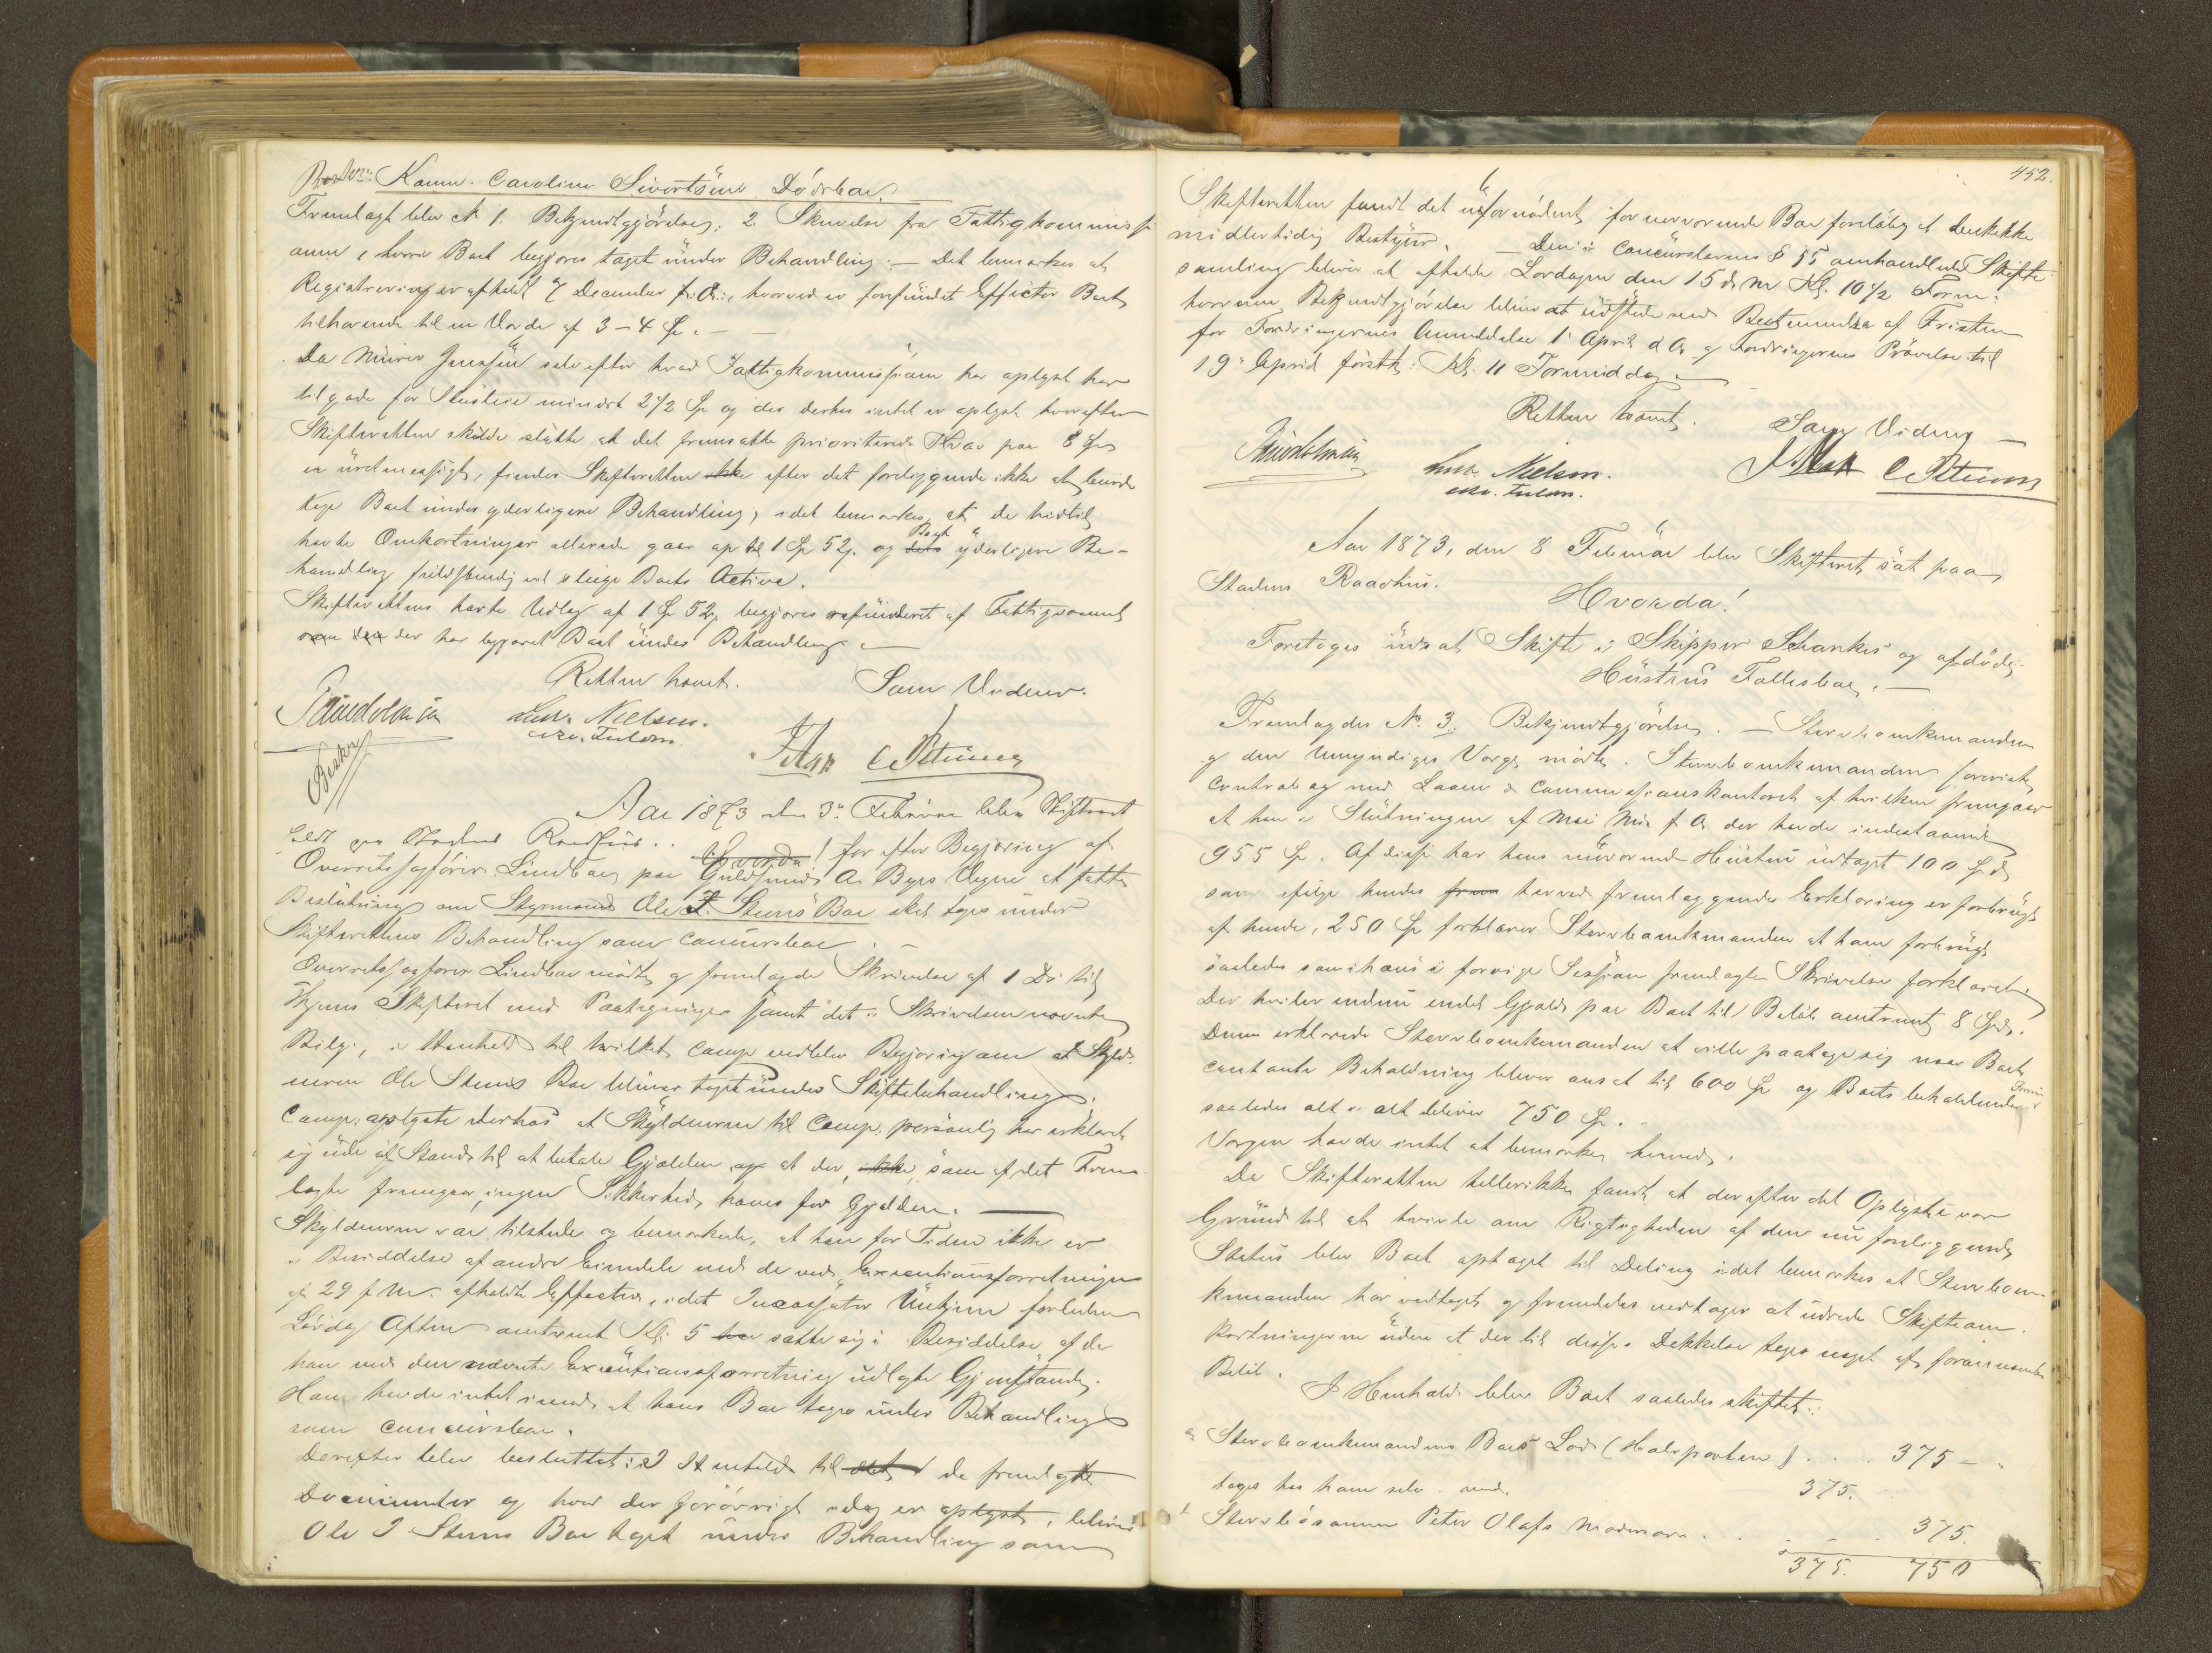 Kann. Caroline Sivertsens Dödsbo.
Fremlagt blev N 1. Bekjendtgjörelse; 2. Skrivelse fra Fattigkommissi
onen, hvori Boet begjæres taget under Behandling. — Det bemærkes at
Registrering er afholdt 7 December f. A., hvorved er forefundet Effecter Boet
tilhørende til en Værdi af 3-4 Sp. —
Da Murer Jenssen selv efter hvad Fattigkommissionen har oplyst har
tilgode for Husleie mindst 2 1/2 Sp og der derhos intet er oplyst hvorefter
Skifteretten skulde slutte at det fremsatte prioriterede Krav paa 8 Sp
er uretmæssigt, finder Skifteretten ikke efter det foreliggende ikke at burde
tage Boet under yderligere Behandling, idet bemærkes, at de hidtil
havte Omkostninger allerede gaar op til 1 Sp 52 og dets Boets yderligere Be-
handling fuldstændig vil sluge Boets Activa.
Skifterettens havte Udlæg af 1 Sp 52 begjæres refunderet af Fattigvæsenet
som der har begjæret Boet under Behandling. —
Retten hævet.
Som Vidner.
Lur. Nielsen.
C Petersen
Aar 1873 den 3. Februar blev Skifteret
holdt paa Stadens Raadhus. Hvorda! for efter Begjæring af
Overretssagfører Lindboe paa Guldsmed A. Byes Vegne at fatte
Beslutning om Styrmand Ole I. Steens Bo skal tages under
Skifterettens Behandling som Concursbo. —
Overretssagfører Lindboe mødte og fremlagde Skrivelse af 1 Ds til
Thjems Skifteret med Paategninger samt det i Skrivelsen nævnte
Bilag, i Henhold til hvilket Comp. vedblev Begjæring om at Skyld-
neren Ole Steens Bo bliver taget under Skiftebehandling.
Comp. oplyste derhos at Skyldneren til Comp. personlig har erklæret
sig ude af Stand til at betale Gjælden og at der, ikke, som af det Frem-
lagte fremgaar, ingen Sikkerhed haves for Gjælden. —
Skyldneren var tilstede og bemærkede, at han for Tiden ikke er
i Besiddelse af andre Eiendele end de ved Executionsforretningen
af 29 f. M. afholdte Effecter, idet Incassator forleden
Lørdag Aften omtrent Kl. 5 har satte sig i Besiddelse af de
han ved den nævnte Executionsforretning udlagte Gjenstande.
Han havde intet imod at hans Bo toges under Behandling
som Concursbo.
Derefter blev besluttet: I Henhold til det de fremlagte
Documenter og hvad der forövrigt idag er oplyst, bliver
Ole I Steens Bo taget under Behandling som
452.
Skifteretten fandt det ufornödent for nærværende Bo foreløbig at beskikke
midlertidig Bestyrer. — Den i Concurslovens § 55 omhandlede Skifte-
samling bliver at afholde Lørdagen den 15 d. M. Kl. 10 1/2 Form.
hvorom Bekjendtgjörelse bliver at udstede med Bestemmelse af Fristen
for Fordringernes Anmeldelse 1 April d. A. og Fordringernes Prövelse til
19. April förstk. Kl. 11 Formiddag. —
Retten hævet.
Som Vidner
Lur. Nielsen.
C Petersen
Aar 1873, den 8 Februar blev Skifteret sat paa
Stadens Raadhus.
Hvorda!
Foretoges udsat Skifte i Skipper Schankes og afdöde
Hustrus Fællesbo. —
Fremlagdes No. 3. Bekjendtgjörelse. — Stervboenkemanden
og den Umyndiges Værge mødte. Stervboenkemanden foreviste
Contrabog med Laane & Commissionskontoret af hvilken fremgaar
at han i Slutningen af Mai Md f. A. der havde indestaaende
955 Sp. Af disse har hans nuværende Hustru udtaget 100 Spd
som ifølge hendes frem herved fremlæggende Erklæring er forbrugt
af hende, 250 Sp forklarer Stervboenkemanden at have forbrugt
saaledes som i hans i forrige Session fremlagte Skrivelse forklaret.
Der hviler endnu endel Gjæld paa Boet til Belöb omtrent 8 Spd.
Denne erklærede Stervboenkemanden at ville paatage sig naar Boets
contante Beholdning bliver ansat til 600 Sp og Boets beholdende Formue
saaledes alt i alt bliver 750 Sp. —
Værgen havde intet at bemærke herved.
Da Skifteretten hellerikke fandt at der efter det Oplyste var
Grund til at tvivle om Rigtigheden af den nu foreliggende
Status blev Boet optaget til Deling idet bemærkes at Stervboen-
kemanden har vedtaget og fremdeles vedtager at udrede Skifteom-
kostningerne uden at der til disses Dækkelse tages noget af forannævnte
Belöb.
I Henhold blev Boet saaledes skiftet:
a Stervboenkemandens Boes Lod (Halvparten) . . . 375 -
tages hos ham selv med. 375.
b Stervbosønnen Peter Olafs Mødrearv . . . 375.
375. 750